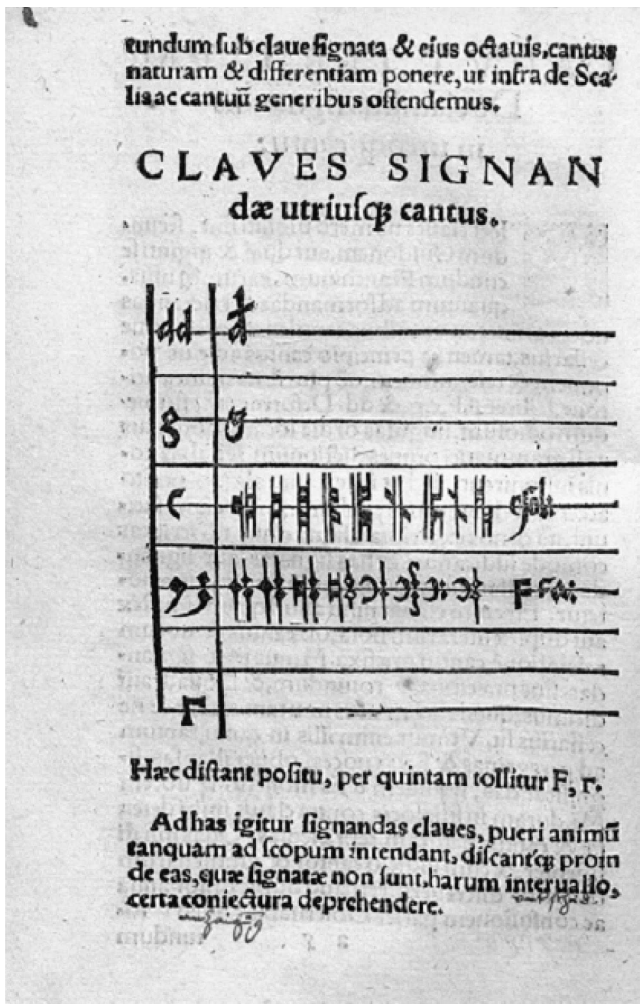 cundum sub claue signata & eius octauis, cantus
naturam & differentiam ponere, ut infra de Sca-
lis ac cantuũ generibus ostendemus.
CLAVES SIGNAN
dæ utriusq; cantus.
dd d
g
c
F
Γ
Hæc distant positu, per quintam tollitur F, Γ.
Ad has igitur signandas claues, pueri animũ
tanquam ad scopum intendant, discantq; proin
de eas, quæ signatæ non sunt, harum interuallo,
certa coniectura deprehendere.